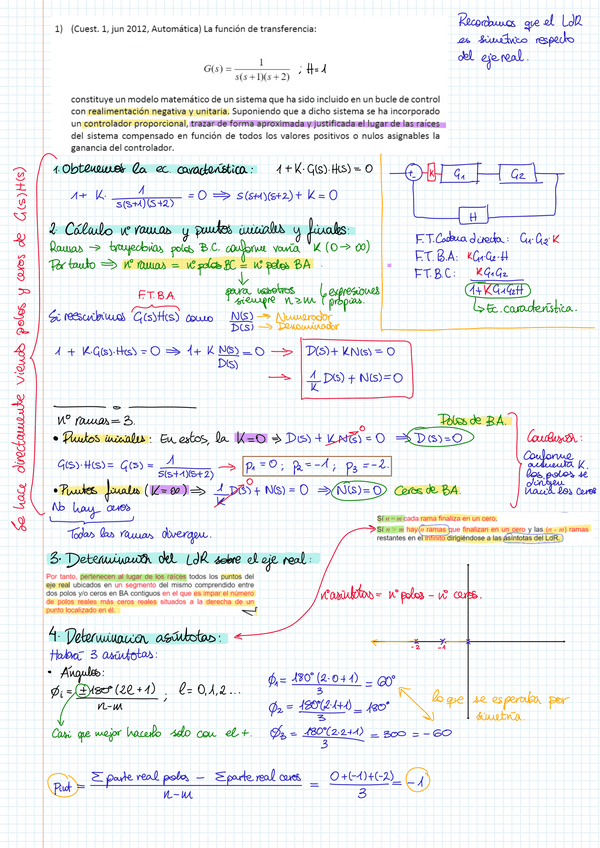 Recordamos que el LdR
es simétrico respecto
del eje real.
1) (Cuest. 1, jun 2012, Automática) La función de transferencia:
G(s) = 1 / s(s+1)(s+2) ; H=1
constituye un modelo matemático de un sistema que ha sido incluido en un bucle de control
con realimentación negativa y unitaria. Suponiendo que a dicho sistema se ha incorporado
un controlador proporcional, trazar de forma aproximada y justificada el lugar de las raíces
del sistema compensado en función de todos los valores positivos o nulos asignables la
ganancia del controlador.
Se hace directamente viendo polos y ceros de G(s)H(s)
1. Obtenemos la ec. característica: 1+K·G(s)·H(s) = 0
1+ K· 1 / s(s+1)(s+2) = 0 ⇒ s(s+1)(s+2) + K = 0
+ - K G1 G2
H
F.T. Cadena directa: G1·G2·K
F.T. B.A: K G1·G2·H
F.T. B.C: K G1 G2 / 1+K G1 G2 H
↳ Ec. característica.
2. Cálculo nº ramas y puntos iniciales y finales:
Ramas → trayectorias polos B.C. conforme varía K (0 → ∞)
Por tanto ⇒ nº ramas = nº polos BC = nº polos BA
para nosotros siempre n≥m
expresiones propias.
F.T.B.A.
Si reescribimos G(s)H(s) como N(s) / D(s)
→ Numerador
→ Denominador
1 + K·G(s)·H(s) = 0 ⇒ 1 + K N(s) / D(s) = 0 → D(s) + K N(s) = 0
→ 1/K D(s) + N(s) = 0
nº ramas = 3.
Polos de B.A.
• Puntos iniciales: En estos, la K=0 ⇒ D(s) + K N(s) = 0 ⇒ D(s) = 0
0
G(s)·H(s) = G(s) = 1 / s(s+1)(s+2) → p1 = 0 ; p2 = -1 ; p3 = -2.
• Puntos finales (K=∞) ⇒ 1/K D(s) + N(s) = 0 ⇒ N(s) = 0 Ceros de BA.
0
No hay ceros
Todas las ramas divergen.
Conclusión:
Conforme
aumenta K.
los polos se
dirigen
hacia los ceros
Si n = m cada rama finaliza en un cero.
Si n > m hay m ramas que finalizan en un cero y las (n - m) ramas
restantes en el infinito dirigiéndose a las asíntotas del LdR.
3. Determinación del LdR sobre el eje real:
Por tanto, pertenecen al lugar de los raíces todos los puntos del
eje real ubicados en un segmento del mismo comprendido entre
dos polos y/o ceros en BA contiguos en el que es impar el número
de polos reales más ceros reales situados a la derecha de un
punto localizado en él.
nº asíntotas = nº polos - nº ceros.
-2 -1
4. Determinación asíntotas:
Habrá 3 asíntotas:
• Ángulos:
ϕi = ±180°(2l+1) / n-m ; l = 0,1,2...
Casi que mejor hacerlo solo con el +.
ϕ1 = 180°(2·0+1) / 3 = 60°
ϕ2 = 180°(2·1+1) / 3 = 180°
ϕ3 = 180°(2·2+1) / 3 = 300 = -60
lo que se esperaba por
simetría.
= Σ parte real polos - Σ parte real ceros / n-m = 0+(-1)+(-2) / 3 = -1